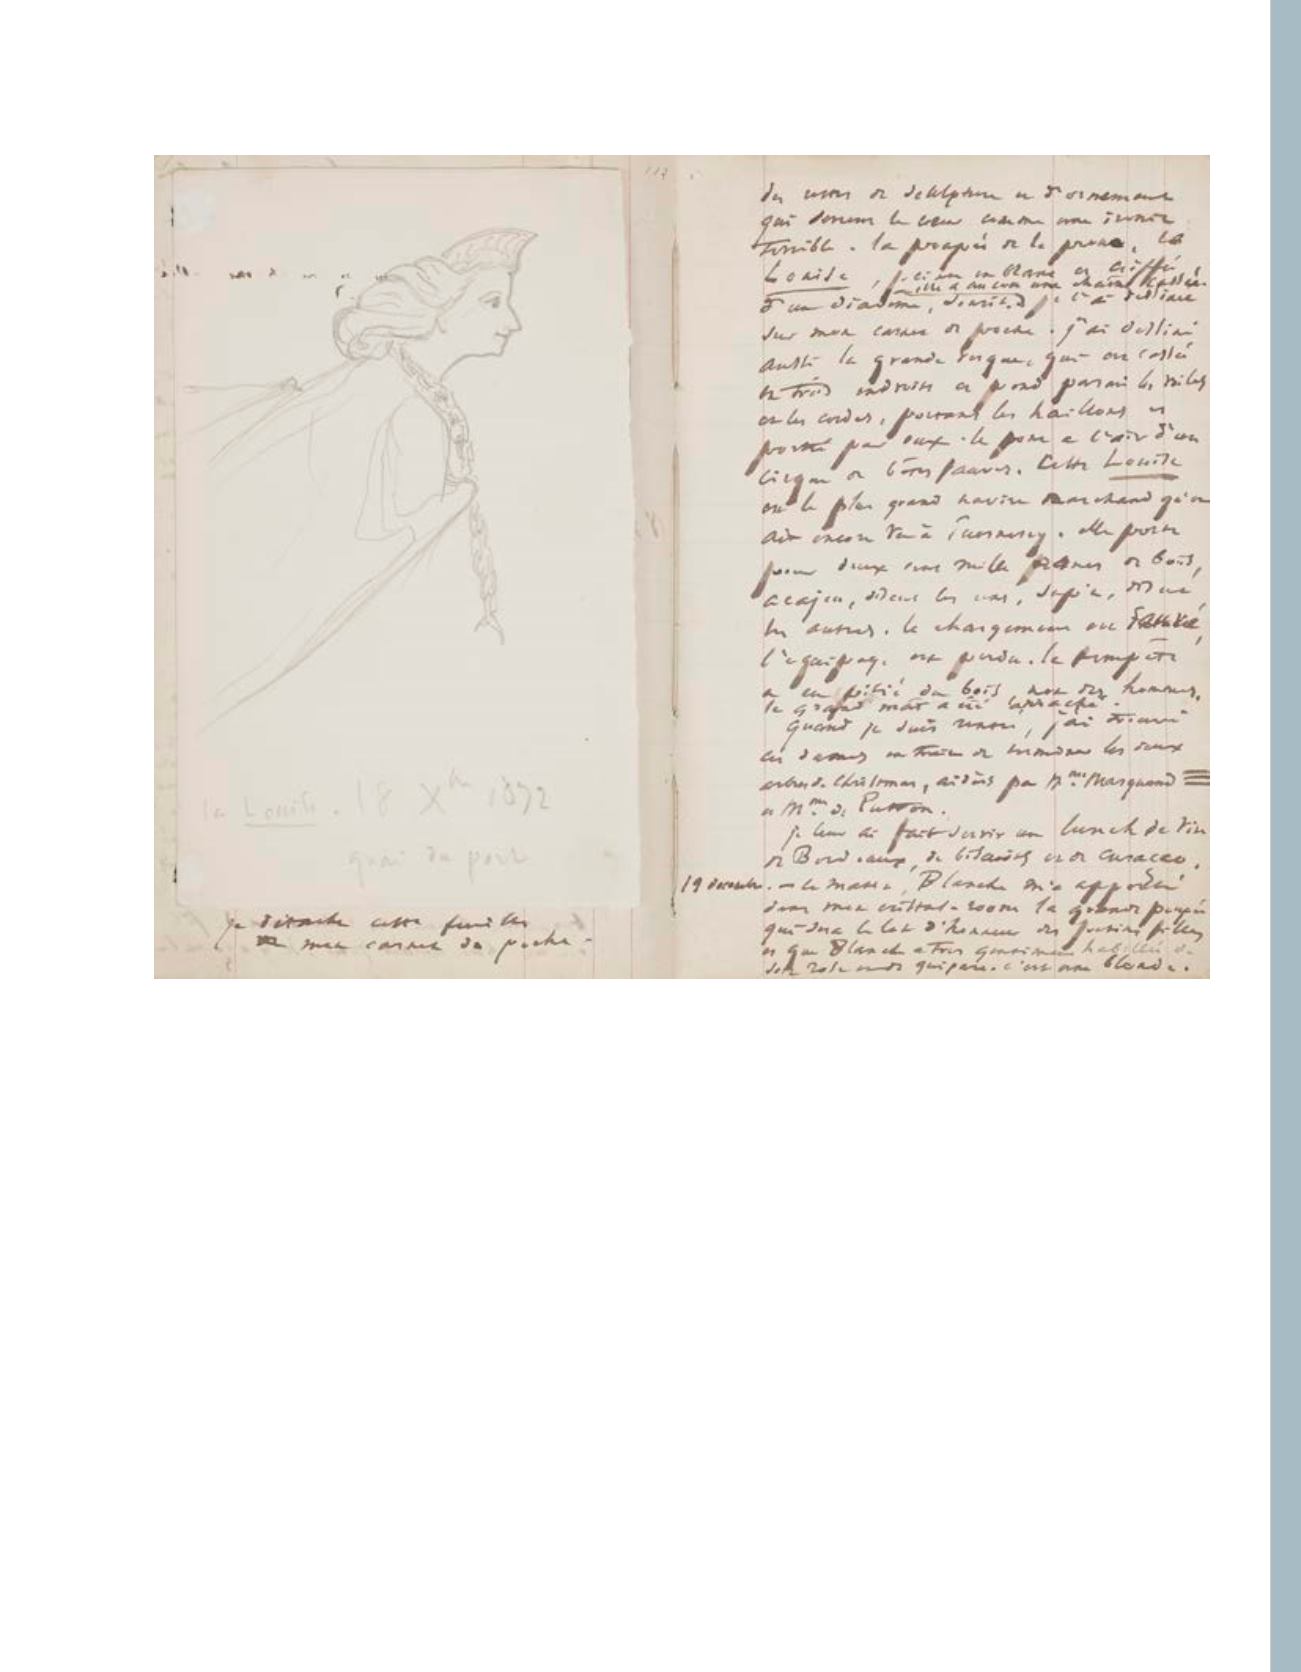 la Louise. 18 Xbre 1872
quai du port
je détache cette feuille
de mon carnet de poche.
des restes de sculpture et d'ornement
qui serrent le cœur comme une ironie
terrible. la poupée de la proue, la
Louise, peinte en blanc et coiffée
elle a au cou une chaîne cassée.
d'un diadème, sourit. je l'ai dessinée
sur mon carnet de poche. j'ai dessiné
aussi la grande vergue, qui est cassée
en trois endroits et pend parmi les toiles
et les cordes, portant les haillons et
porté par eux. le pont a l'air d'un
cirque de bêtes fauves. Cette Louise
est le plus grand navire marchand qu'on
ait encore vu à Guernesey. elle porte
pour deux cent mille francs de bois,
acajou, disent les uns, sapin, disent
les autres. le chargement est sauvé,
l'équipage est perdu. la tempête
a eu pitié du bois, non des hommes.
le grand mât a été arraché.
Quand je suis rentré, j'ai trouvé
ces dames en train de terminer les deux
arbres de Christmas, aidées par Mme Marquand
et Mme de Putron.
je leur ai fait servir un lunch de vin
de Bordeaux, de biscuits et de curacao.
19 décembre. — ce matin, Blanche m'a apporté
dans mon crystal-room la grande poupée
qui sera le lot d'honneur des petites filles
et que Blanche a très gentiment habillée de
soie rose et de guipure. c'est une blonde.